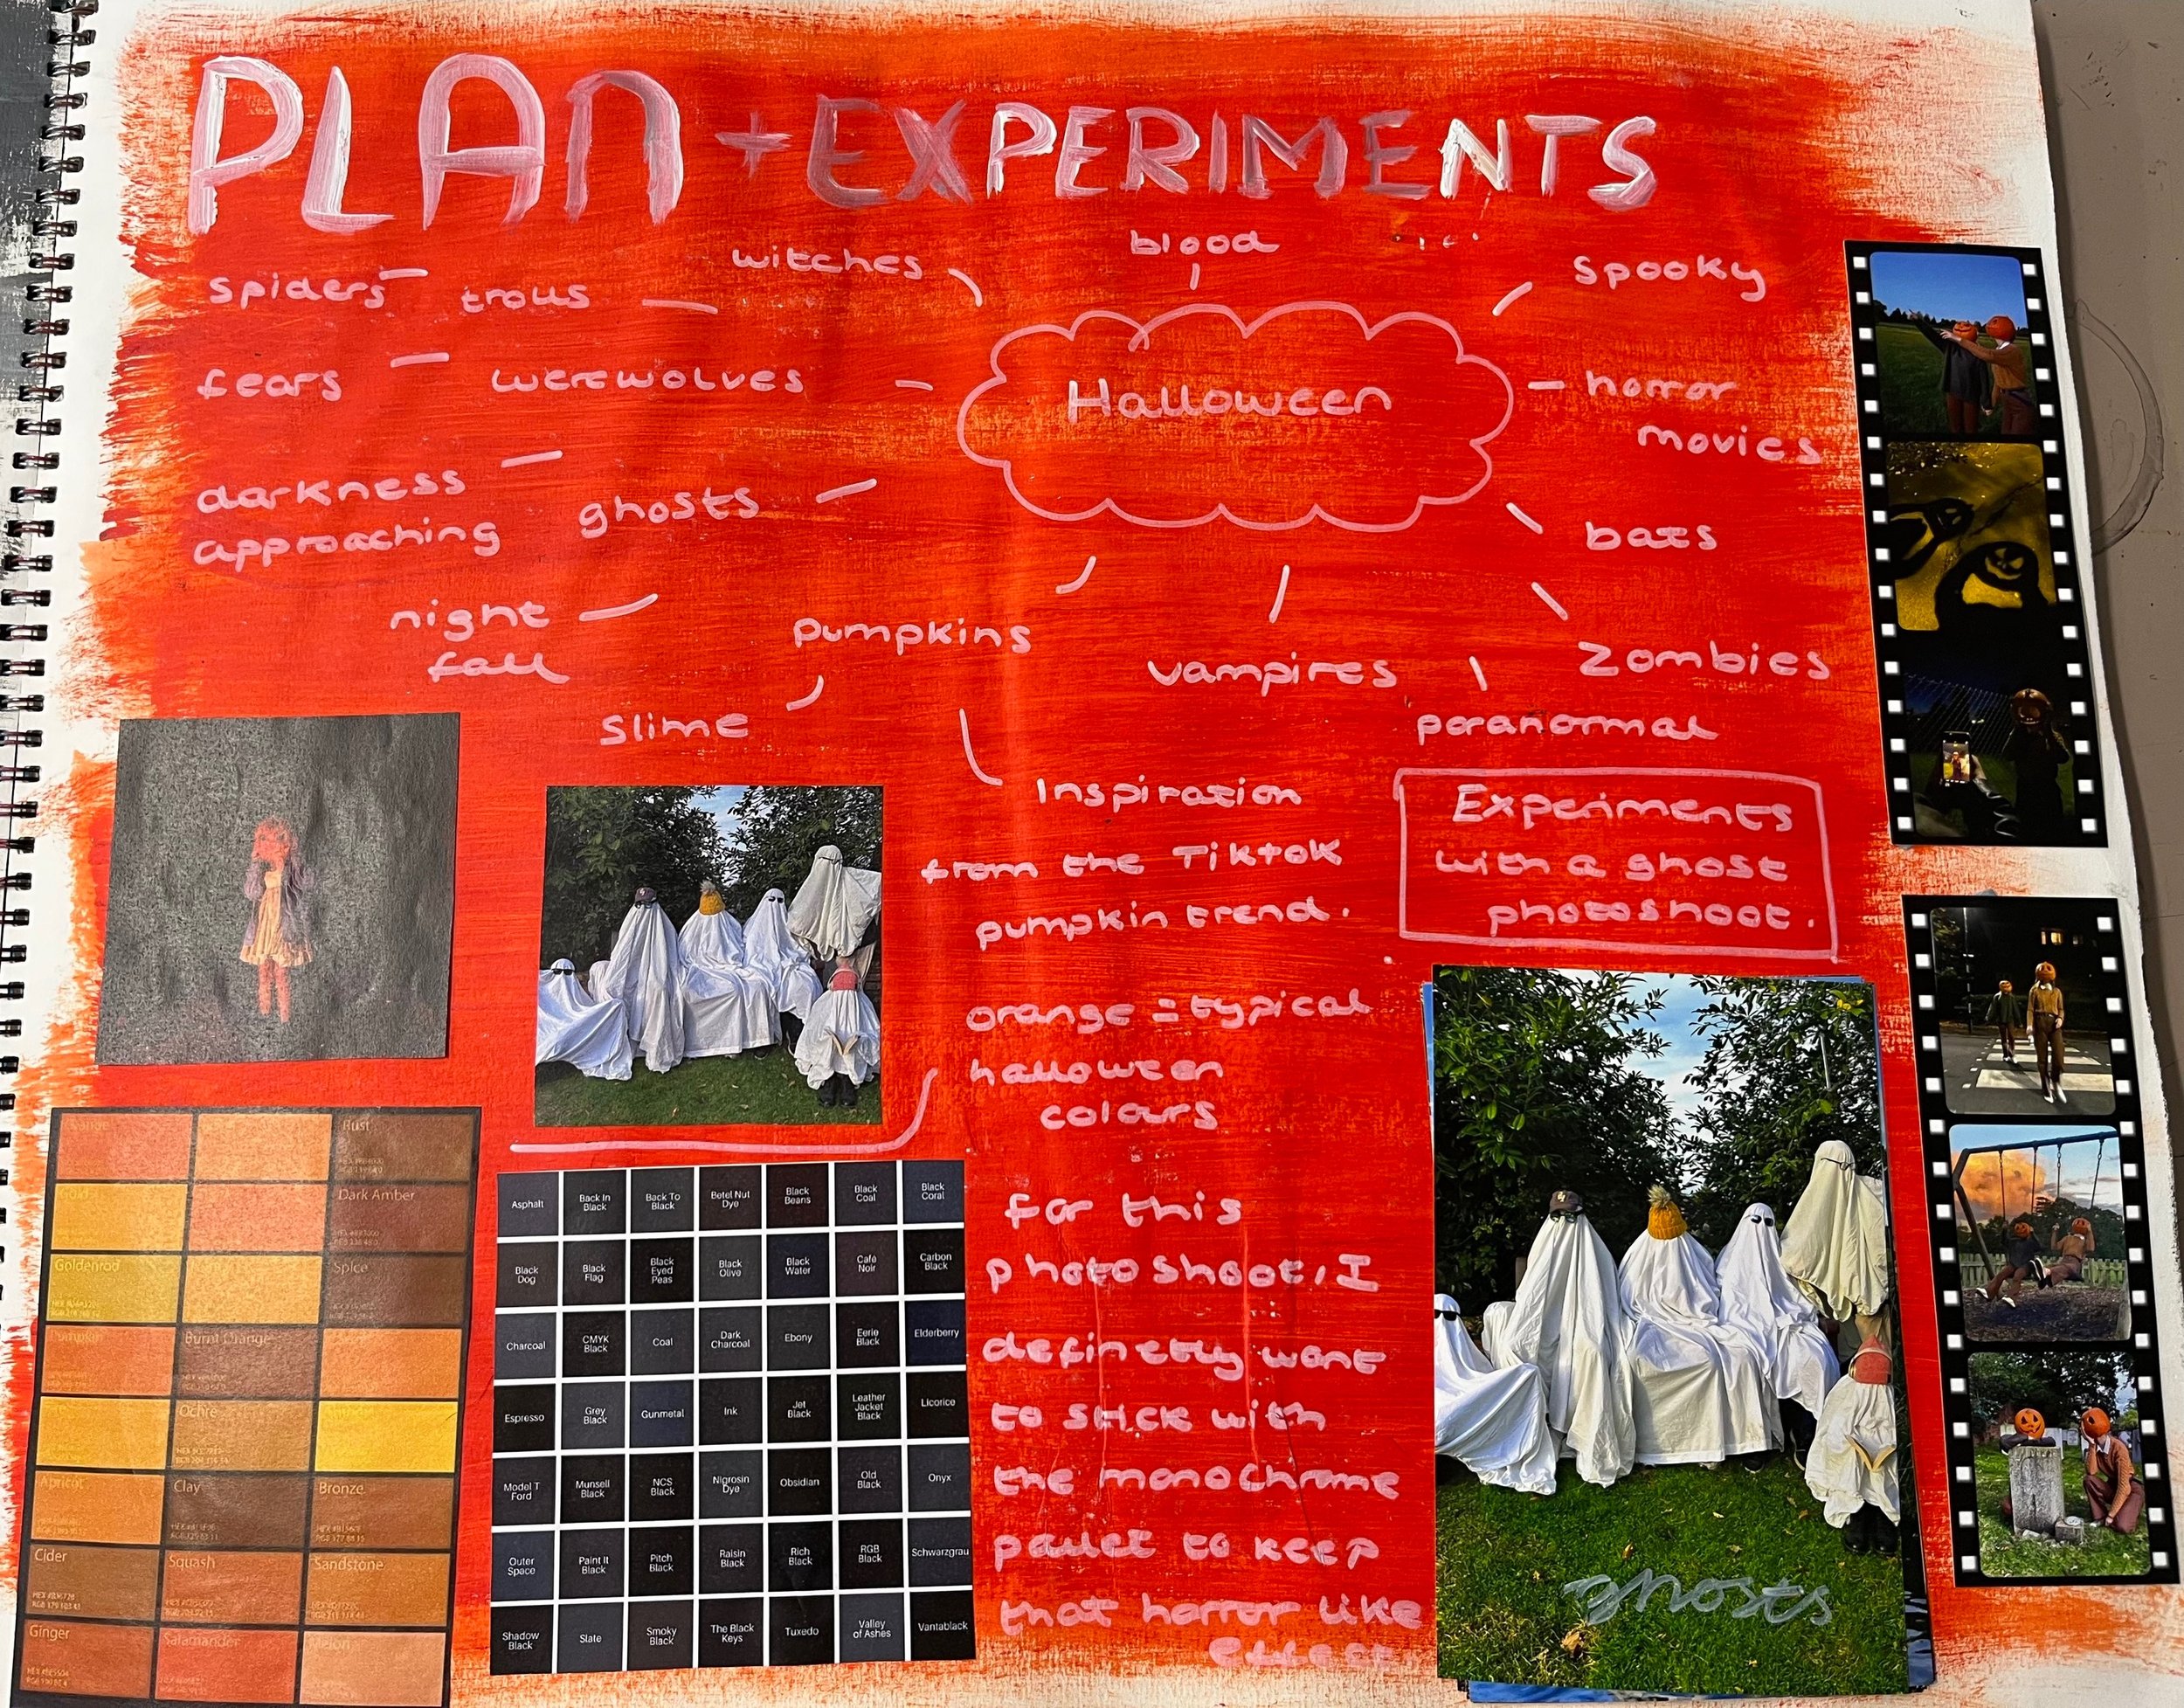 PLAN + EXPERIMENTS
spiders
trolls
witches
blood
spooky
fears
werewolves
Halloween
horror
movies
darkness
approaching
ghosts
bats
night
fall
pumpkins
vampires
zombies
slime
paranormal
Inspiration
from the Tiktok
pumpkin trend.
Experiments
with a ghost
photoshoot.
orange = typical
halloween
colours
for this
photoshoot, I
definetly want
to stick with
the monochrome
palet to keep
that horror like
effect
ghosts
Rust
Gold
Dark Amber
Goldenrod
Spice
Pumpkin
Burnt Orange
Ochre
Apricot
Clay
Bronze
Cider
Squash
Sandstone
Ginger
Salamander
Melon
Asphalt
Back In
Black
Back To
Black
Betel Nut
Dye
Black
Beans
Black
Coal
Black
Coral
Black
Dog
Black
Flag
Black
Eyed
Peas
Black
Olive
Black
Water
Café
Noir
Carbon
Black
Charcoal
CMYK
Black
Coal
Dark
Charcoal
Ebony
Eerie
Black
Elderberry
Espresso
Grey
Black
Gunmetal
Ink
Jet
Black
Leather
Jacket
Black
Licorice
Model T
Ford
Munsell
Black
NCS
Black
Nigrosin
Dye
Obsidian
Old
Black
Onyx
Outer
Space
Paint It
Black
Pitch
Black
Raisin
Black
Rich
Black
RGB
Black
Schwarzgrau
Shadow
Black
Slate
Smoky
Black
The Black
Keys
Tuxedo
Valley
of Ashes
Vantablack